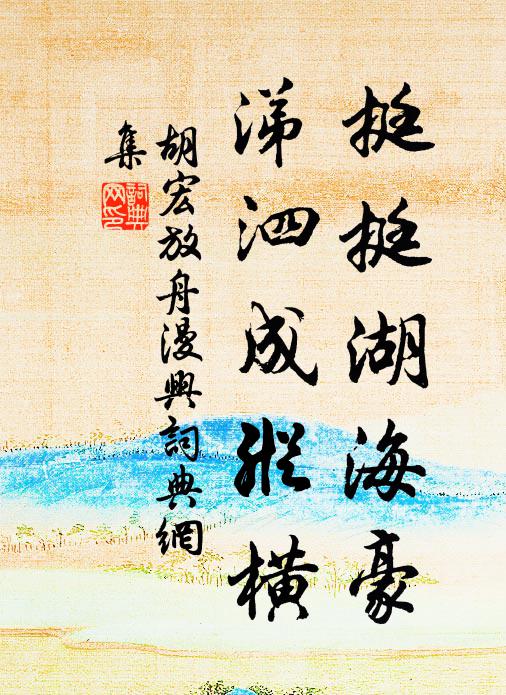 挺挺湖海豪
涕泗成縱橫
胡宏放舟漫興詞典網
集
詞典网印